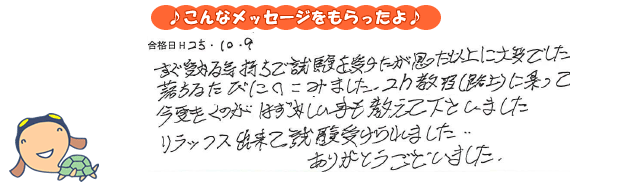 ♪こんなメッセージをもらったよ♪
合格日H25.10.9
すぐ受かる気持ちで試験を受けたが思った以上に大変でした
落ちるたびにへこみました。教習(路上)に乗って
今更きくのがはずかしい事も教えて下さいました
リラックス出来て試験受けられました..
ありがとうございました。